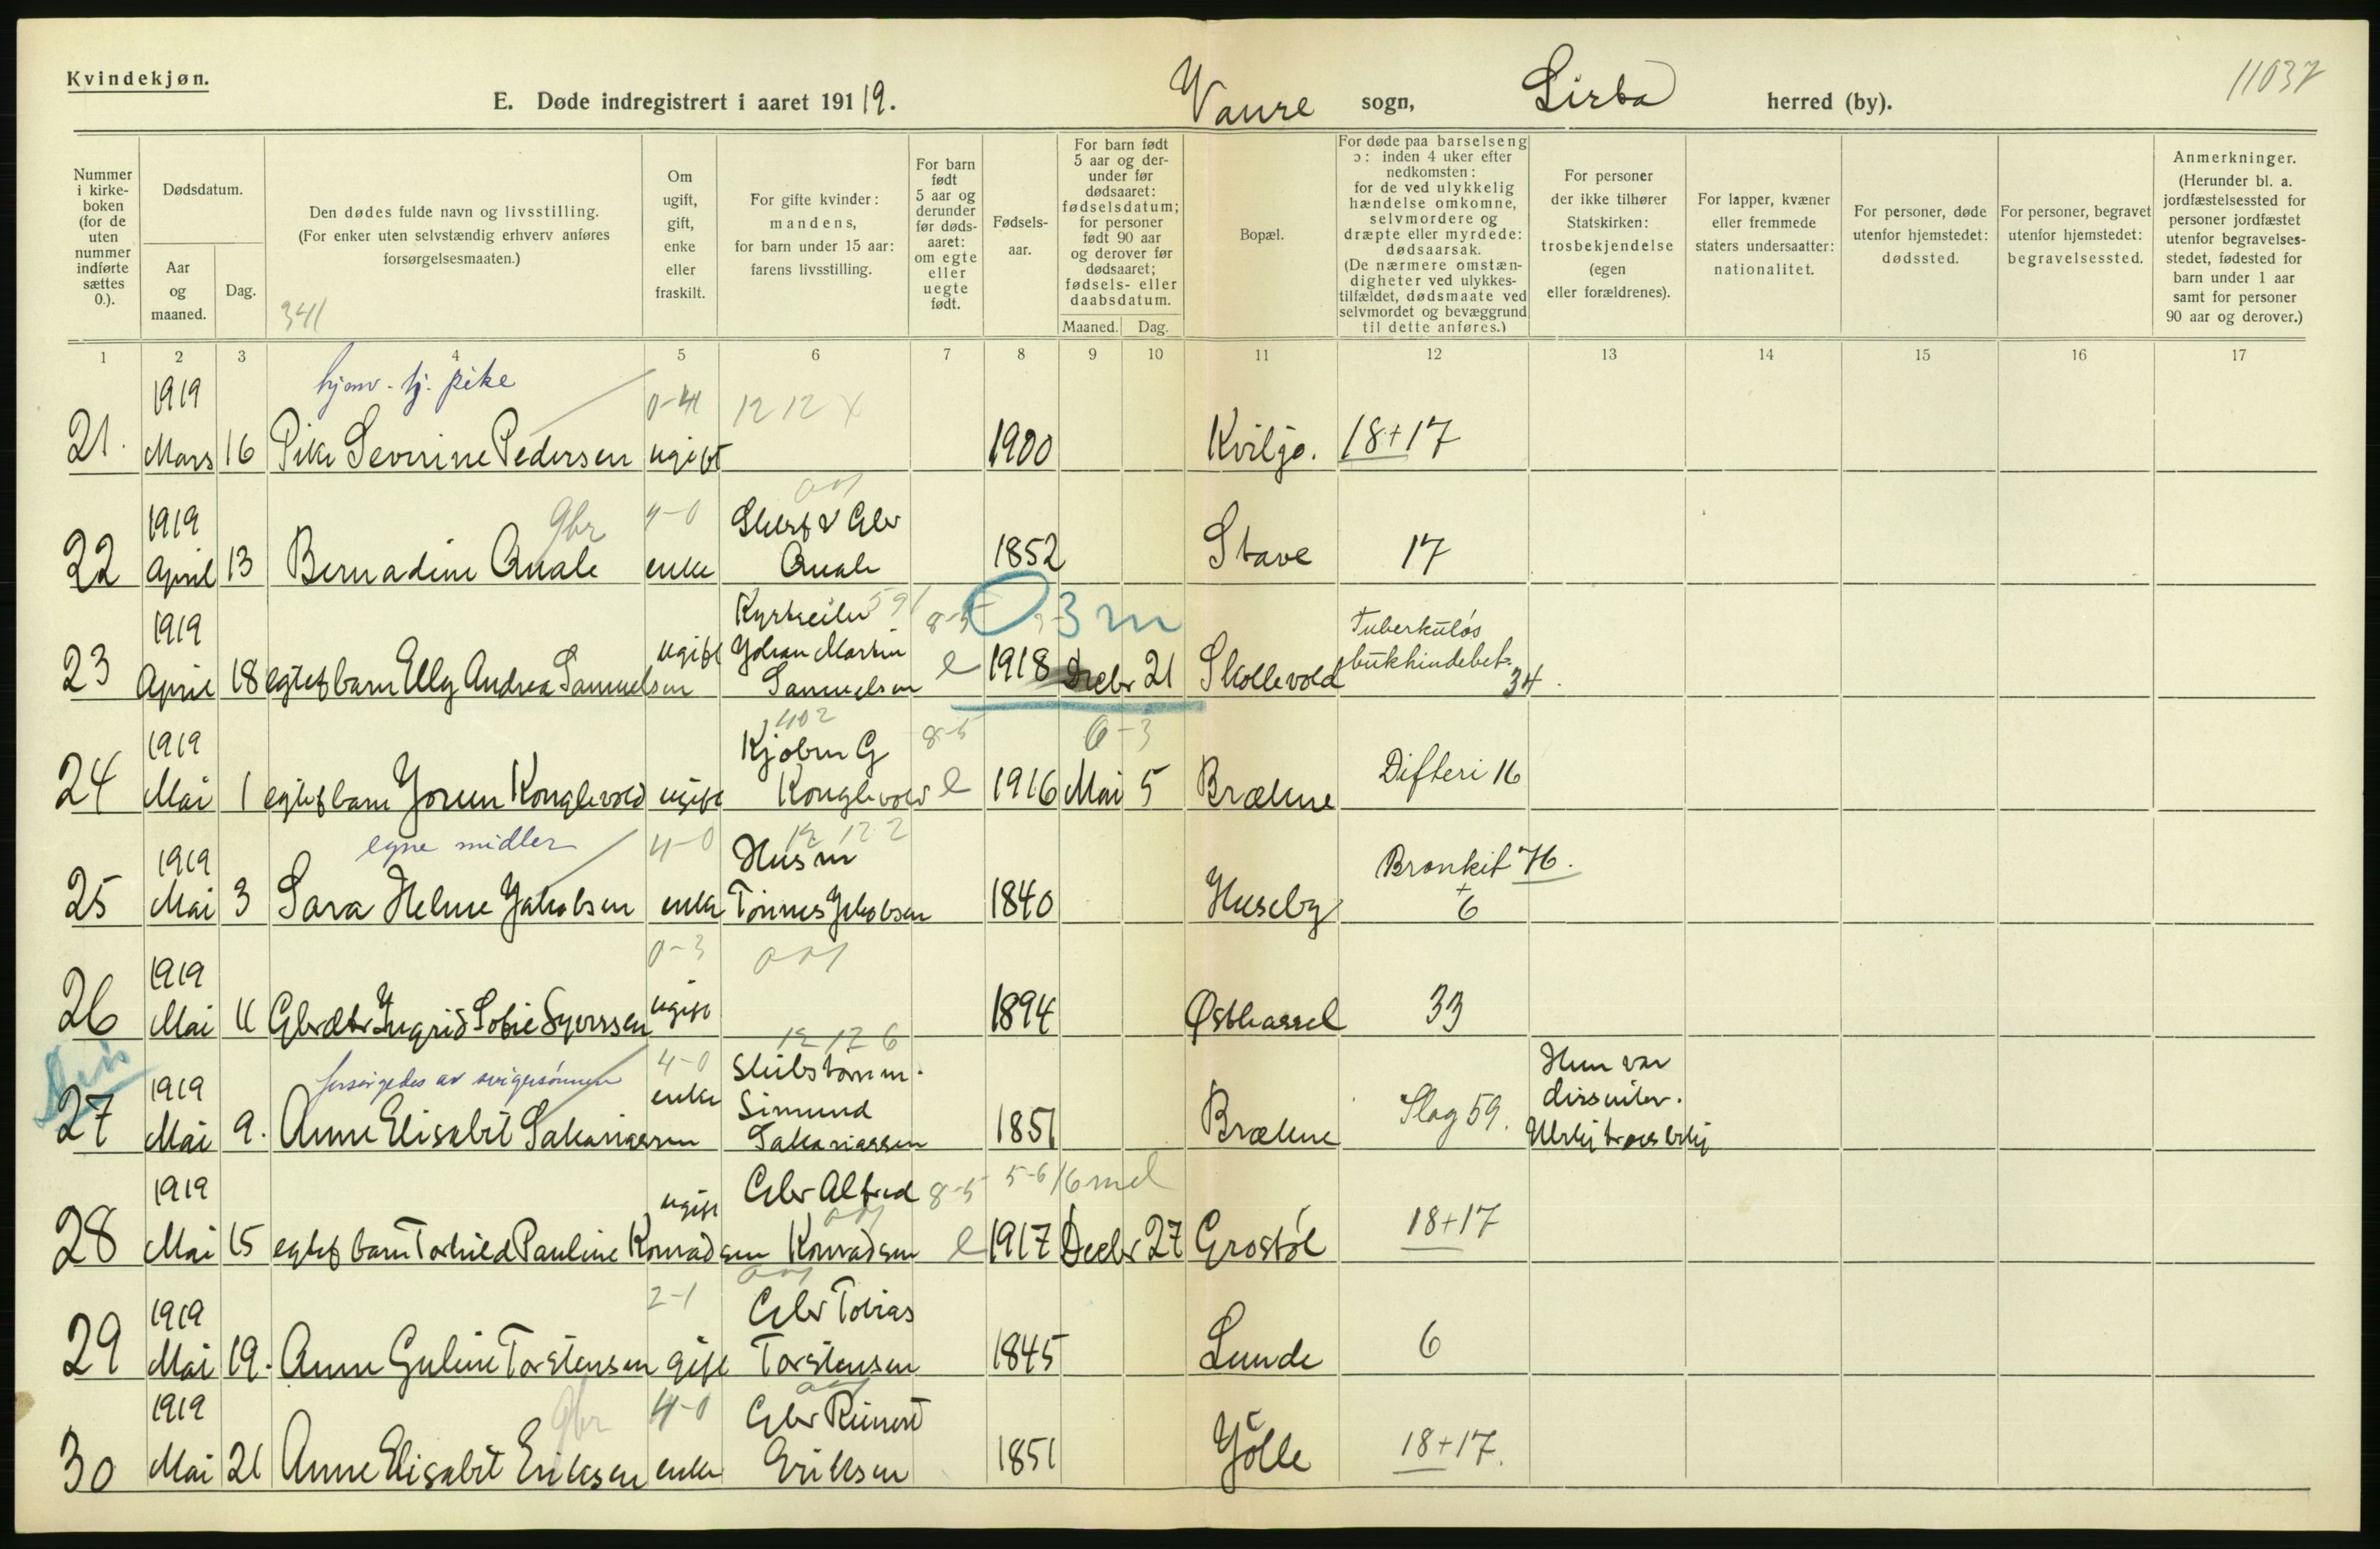 Kvindekjøn.
E. Døde indregistrert i aaret 19119. Vanse sogn, Lista herred (by). 11037
Nummer i kirkeboken (for de uten nummer indførte sættes 0.).
Dødsdatum.
Aar og maaned.
Dag.
Den dødes fulde navn og livsstilling.
(For enker uten selvstændig erhverv anføres forsørgelsesmaaten.)
341
Om ugift, gift, enke eller fraskilt.
For gifte kvinder: mandens, for barn under 15 aar: farens livsstilling.
For barn født 5 aar og derunder før dødsaaret: om egte eller uegte født.
Fødselsaar.
For barn født 5 aar og derunder før dødsaaret: fødselsdatum; for personer født 90 aar og derover før dødsaaret; fødsels- eller daabsdatum.
Maaned. Dag.
Bopæl.
For døde paa barselseng ɔ: inden 4 uker efter nedkomsten: for de ved ulykkelig hændelse omkomne, selvmordere og dræpte eller myrdede: dødsaarsak.
(De nærmere omstændigheter ved ulykkestilfældet, dødsmaate ved selvmordet og bevæggrund til dette anføres.)
For personer der ikke tilhører Statskirken: trosbekjendelse (egen eller forældrenes).
For lapper, kvæner eller fremmede staters undersaatter: nationalitet.
For personer, døde utenfor hjemstedet: dødssted.
For personer, begravet utenfor hjemstedet: begravelsessted.
Anmerkninger.
(Herunder bl. a. jordfæstelsessted for personer jordfæstet utenfor begravelsesstedet, fødested for barn under 1 aar samt for personer 90 aar og derover.)
1 2 3 4 5 6 7 8 9 10 11 12 13 14 15 16 17
1919 hjemv. hj. pike 0-41 12 12 X
21. Mars 16 Pike Severine Pedersen ugift 1900 Kviljo. 18+17
1919 gbr 4-0
22 April 13 Bernadine Qvale enke Qvale 1852 Stave 17
1919 591 8-5 0 3 m Tuberkuløs
23 April 18 egtef barn Elly Andrea Samuelsen ugift Johan Martin Samuelsen e 1918 Decbr 21 Skollevold bukhindebet. 34.
1919 402 8-5 6-3
24 Mai 1 egtef barn Jorun Konglevold ugift Konglevold e 1916 Mai 5 Brækne Difteri 16
1919 egne midler 4-0 12 12 2 Husm Bronkit 76.
25 Mai 3 Sara Helene Jakobsen enke Tønnes Jakobsen 1840 Huseby + 6
1919 0-3
26 Mai 11 Gbrdtr Ingrid Sofie Syversen ugift 1894 Østhassel 33
1919 forsørgedes av svigersønnen 4-0 12 12 6 Skibstømm. Hun var dissenter.
27 Mai 9. Anne Elisabet Sakariassen enke Simund Sakariassen 1851 Brækne Slag 59.
1919 Gbr Alfred 8-5 5-6 16 md
28 Mai 15 egtef barn Torhild Pauline Konradsen ugift Konradsen e 1917 Decbr 27 Grostøl 18+17
1919 2-1 Gbr Tobias
29 Mai 19. Anne Guline Torstensen gift Torstensen 1845 Lunde 6
1919 gbr 4-0 Gbr Reinert
30 Mai 21 Anne Elisabet Eriksen enke Eriksen 1851 Jölle 18+17.